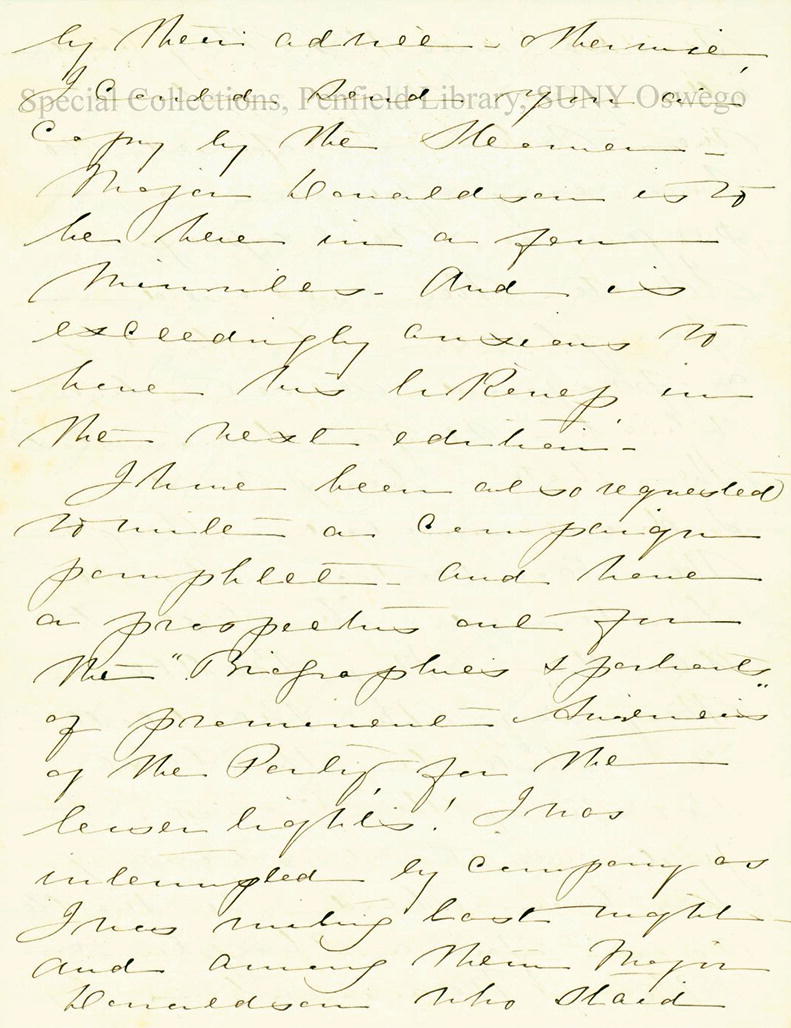 by their advice - otherwise,
I could send you a
Special Collections, Penfield Library, SUNY Oswego
Copy by the Steamer -
Major Donaldson is to
be here in a few
Minutes - And is
exceedingly anxious to
have his likeness in
the next edition -
I have been also requested
to write a Campaign
pamphlet - and have
a prospectus out for
the "Biographies & portraits
of prominent
of the Party, for the
lesser lights! I was
interrupted by company as
I was writing last night -
and among them Major
Donaldson who staid